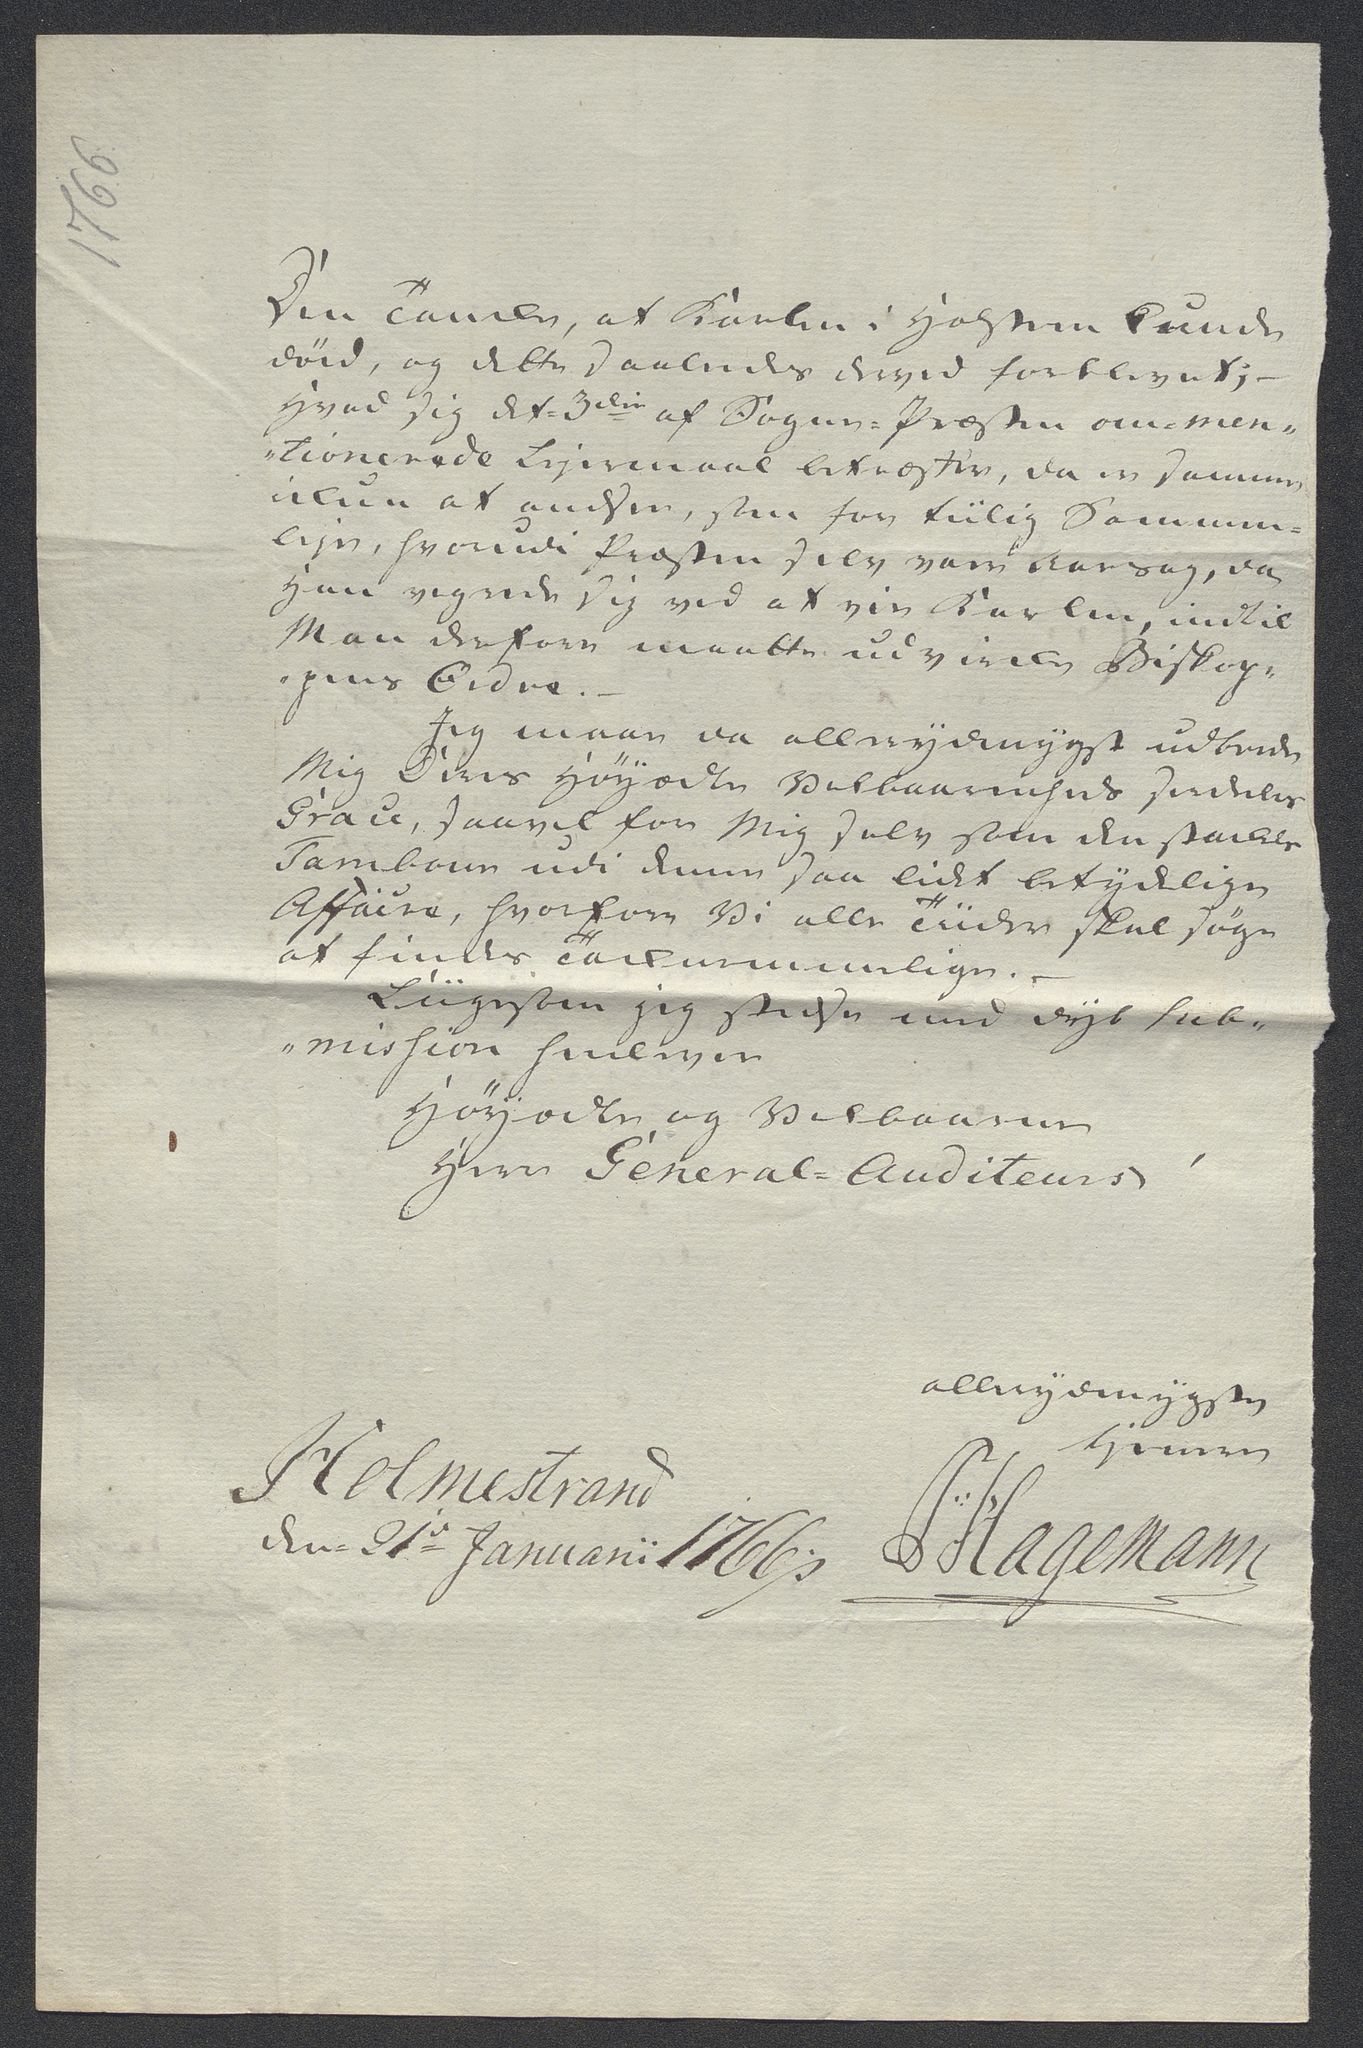 1766.
Den Tanke, at Karlen i Holsten kunde
død, og dette saaledes derved forblevet; –
Hvad sig det 3die af Sogne-Præsten om-men„
„tionerede Lejermaal betræffer, da er samme
ikun at ansee, som for tiilig Sammen-
leje, hvorudi Præsten selv var Aarsag, da
Han vegrede sig ved at vie Karlen, indtil
Man derfore maatte udvirke Biskop„
„pens Ordre. –
Jeg maae da allerydmygst udbede
Mig Deres Høyædle Velbaarenheds særdeles
Grace, saavel for Mig selv som den stakkels
Tambour udi denne saa lidet betydelige
Affaire, hvorfore Vi alle Tiider skal søge
at findes Taknemmelige. –
Liigesom jeg stedse med dyb sub„
„mission henlever
Høyædle og Velbaarne
Herr General-Auditeurs
allerydmygste
tjenere
Holmestrand
den 21d Januarii 1766
Hagemann